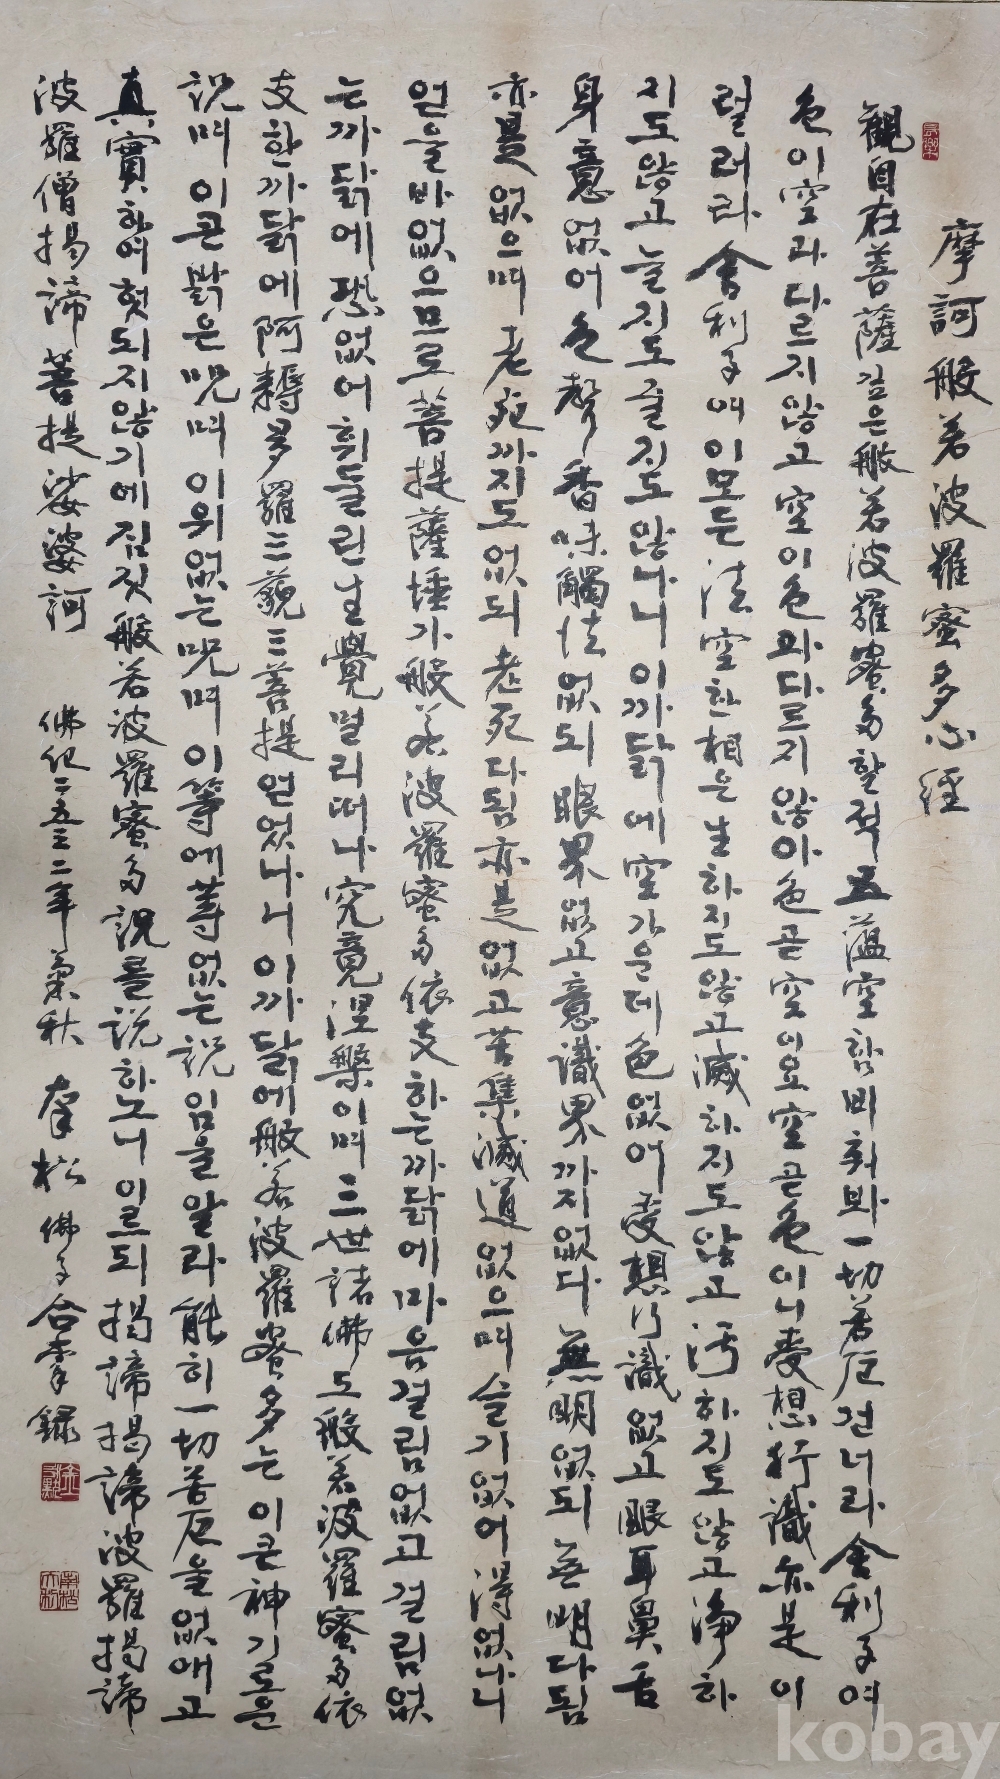 摩訶般若波羅蜜多心經
觀自在菩薩깊은般若波羅蜜多할적五蘊空함비춰봐一切苦厄건너라舍利子여
色이空과다르지않고空이色과다르지않아色곧空이요空곧色이니受想行識亦是이
럴러라舍利子여이모든法空한相은生하지도않고滅하지도않고汚하지도않고淨하
지도않고늘지도줄지도않나니이까닭에空가운데色없어受想行識없고眼耳鼻舌
身意없어色聲香味觸法없되眼界없고意識界까지없다無明없되無明다됨
亦是없으며老死까지도없되老死다됨亦是없고苦集滅道없으며슬기없어得없나니
얻을바없으므로菩提薩埵가般若波羅蜜多依支하는까닭에마음걸림없고걸림없
는까닭에恐없어휘둘린生覺멀리떠나究竟涅槃이며三世諸佛도般若波羅蜜多依
支한까닭에阿耨多羅三藐三菩提얻었나니이까닭에般若波羅蜜多는이큰神기로운
呪며이큰밝은呪며이위없는呪며이等에等없는說임을알라能히一切苦厄을없애고
眞實하여헛되지않기에짐짓般若波羅蜜多說를說하노니이르되揭諦揭諦波羅揭諦
波羅僧揭諦菩提娑婆訶 佛紀二五三二年菊秋 松 佛子合掌錄
kobay